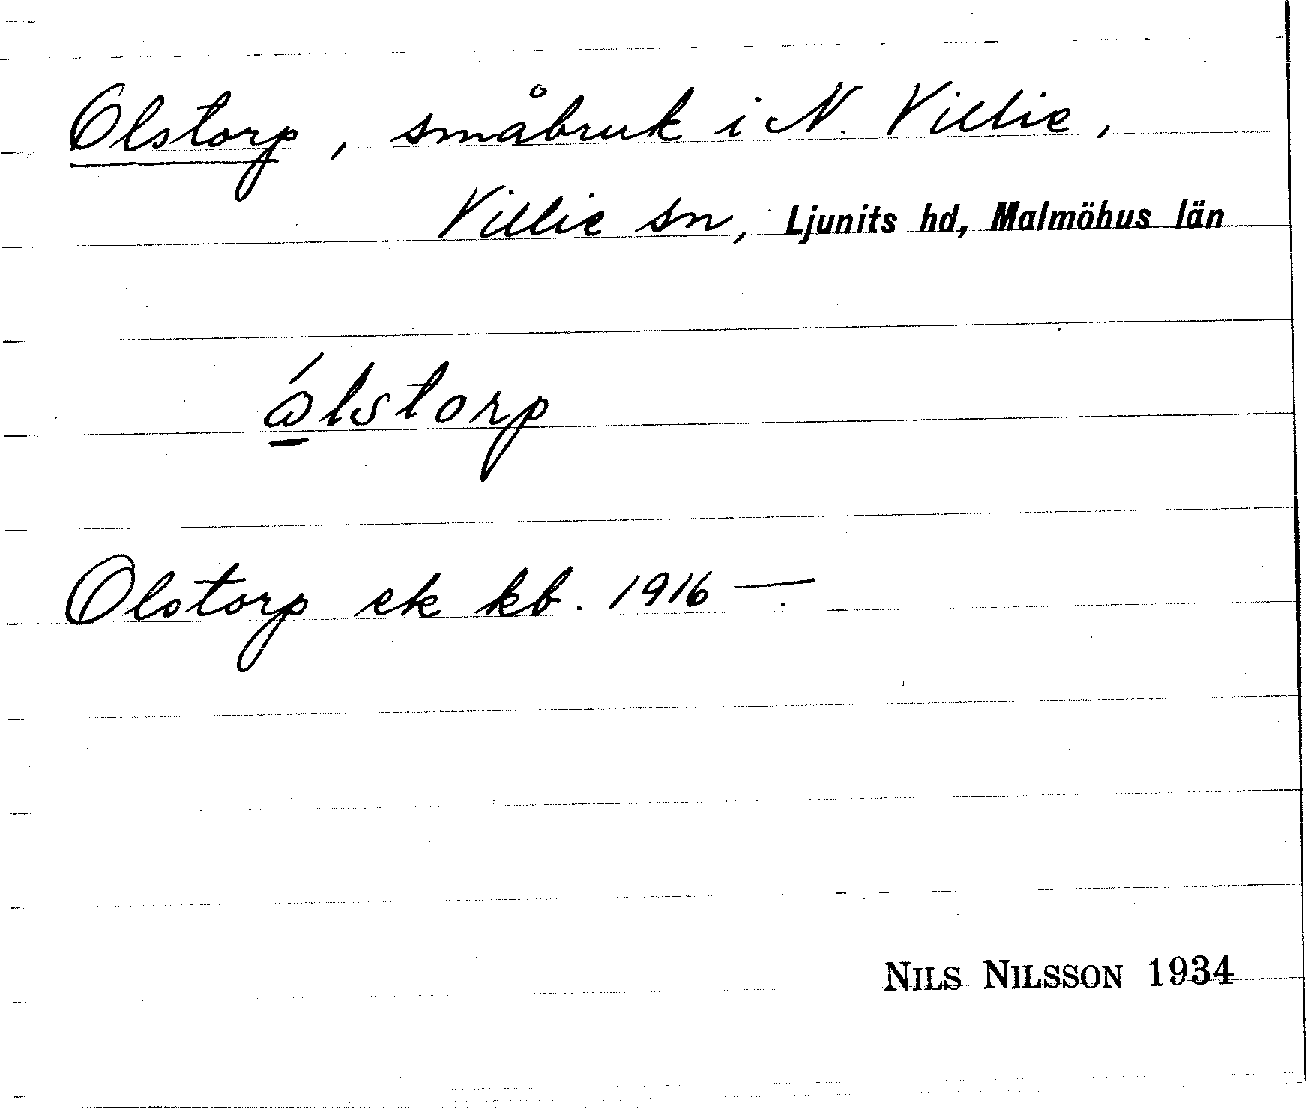 Olstorp, småbruk i N. Villie,
Villie sn, Ljunits hd, Malmöhus län
Olstorp ek kb. 1916 —
NILS NILSSON 1934